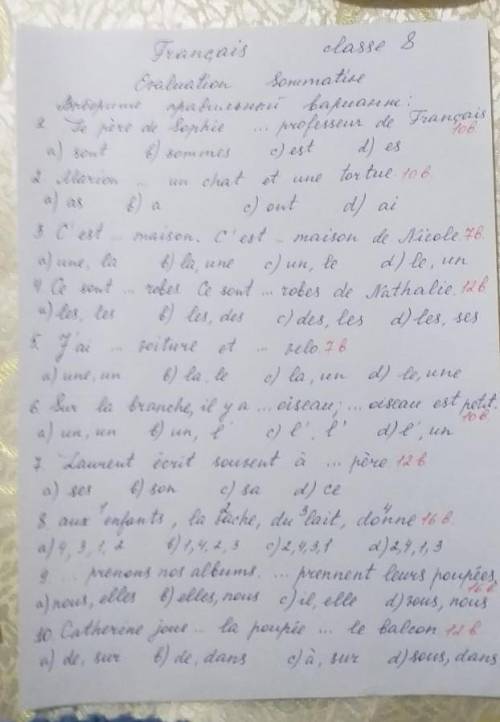 Français classe 8
Evaluation Sommative
Выберите правильный вариант:
Le père de Sophie ... professeur de Français 10б
a) sont b) sommes c) est d) es
2. Marion ... un chat et une tortue. 10б
a) as b) a c) ont d) ai
3 C'est ... maison. C'est ... maison de Nicole. 7б
a) une, la b) la, une c) un, le d) le, un
4 Ce sont ... robes Ce sont ... robes de Nathalie. 12б
a) les, les b) les, des c) des, les d) les, ses
5. J'ai ... voiture et ... velo. 7б
a) une, un b) la, le c) la, un d) le, une
6 Sur la branche, il y a ... oiseau; ... oiseau est petit. 10б
a) un, un b) un, l' c) l', l' d) l', un
7 Laurent écrit souvent à ... père. 12б
a) ses b) son c) sa d) ce
1 2 3 4
8. aux enfants, la vache, du lait, donne 16б
a) 4, 3, 1, 2 b) 1, 4, 2, 3 c) 2, 4, 3, 1 d) 2, 4, 1, 3
9 ... prenons nos albums. ... prennent leurs poupées. 16б
a) nous, elles b) elles, nous c) il, elle d) vous, nous
10. Catherine joue ... la poupée ... le balcon 12б
a) de, sur b) de, dans c) à, sur d) sous, dans